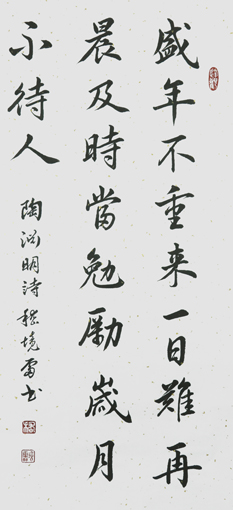 盛年不重来一日難再
晨及時當勉励歲月
不待人
陶渊明詩
境雷书